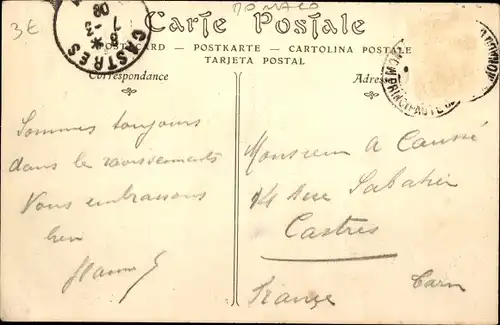 3€
MONACO
Carte Postale
POSTCARD — POSTKARTE — CARTOLINA POSTALE
TARJETA POSTAL
CASTRES
8 -3
08
Correspondance
Adresse
PRINCIPAUTE
Sommes toujours
dans le ravissement
Vous embrassons
bien
Monsieur A Caussé
14 Rue Sabatier
Castres
France Tarn